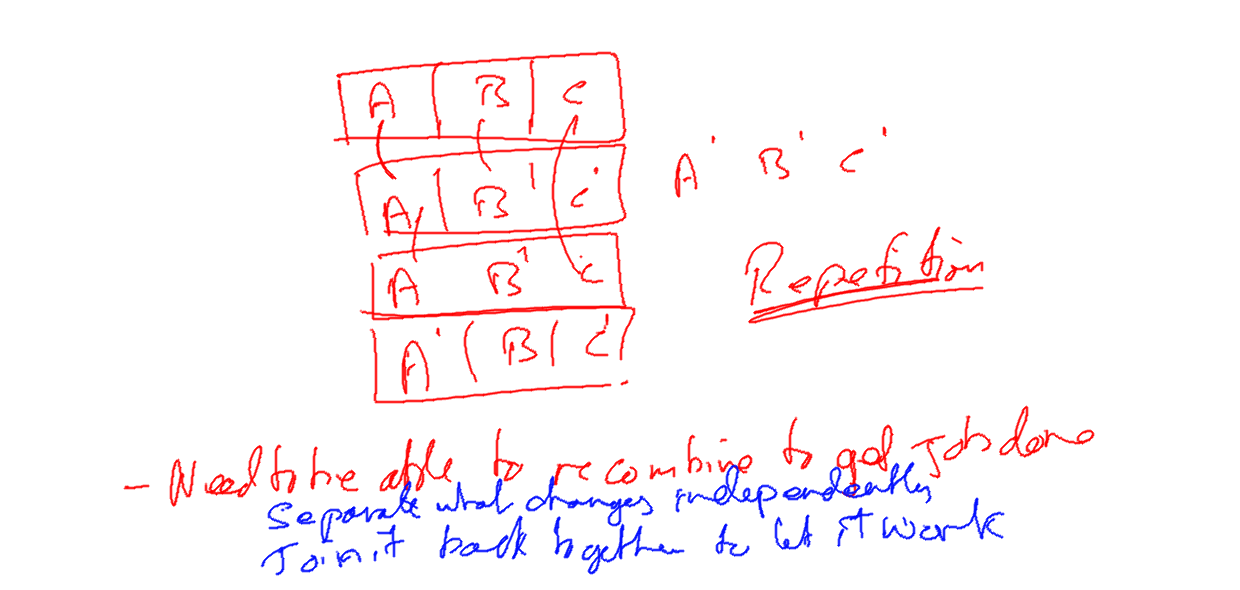 A B C
A B' C'
A' B' C'
Repetition
A B' C
A' B C'
- Need to be able to recombine to get Jobs done
Separate what changes independently
Join it back together to let it work